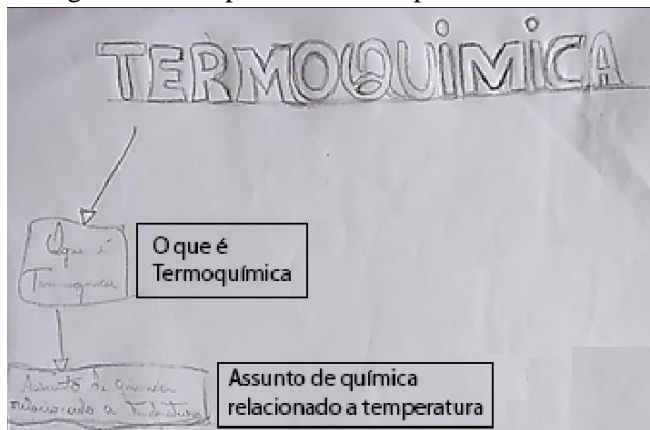 TERMOQUÍMICA
O que é
Termoquímica
O que é
Termoquímica
Assunto de química
relacionado a temperatura
Assunto de química
relacionado a temperatura